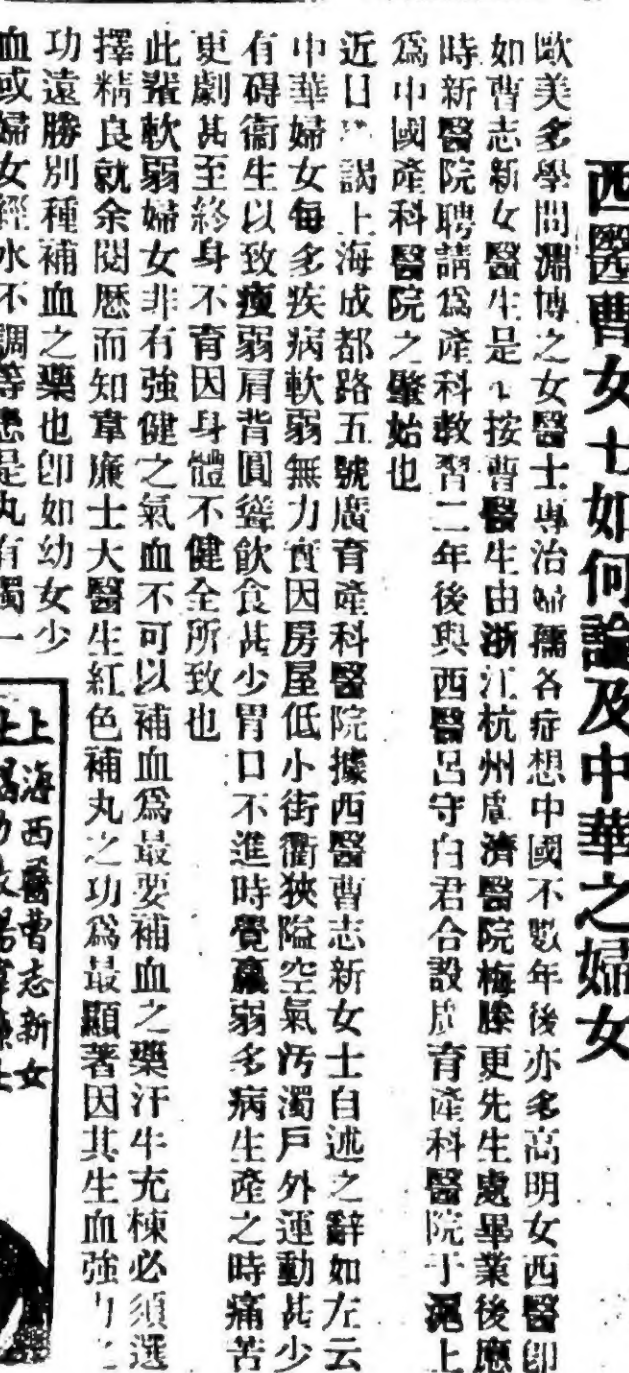 西醫曹女士如何論及中華之婦女
歐美多學問淵博之女醫士專治婦孺各症想中國不數年後亦多高明女西醫卽
如曹志新女醫生是也按曹醫生由浙江杭州廣濟醫院梅滕更先生處畢業後應
時新醫院聘請爲產科敎習二年後與西醫呂守白君合設廣育產科醫院于滬上
爲中國產科醫院之肇始也
近日謁上海成都路五號廣育產科醫院據西醫曹志新女士自述之辭如左云
中華婦女每多疾病軟弱無力實因房屋低小街衢狹隘空氣汚濁戶外運動甚少
有碍衞生以致瘦弱肩背圓聳飮食甚少胃口不進時覺羸弱多病生產之時痛苦
更劇甚至終身不育因身體不健全所致也
此輩軟弱婦女非有強健之氣血不可以補血爲最要補血之藥汗牛充棟必須選
擇精良就余閱歷而知韋廉士大醫生紅色補丸之功爲最顯著因其生血強力之
功遠勝別種補血之藥也卽如幼女少
血或婦女經水不調等患是丸有獨一
上海西醫曹志新女
士